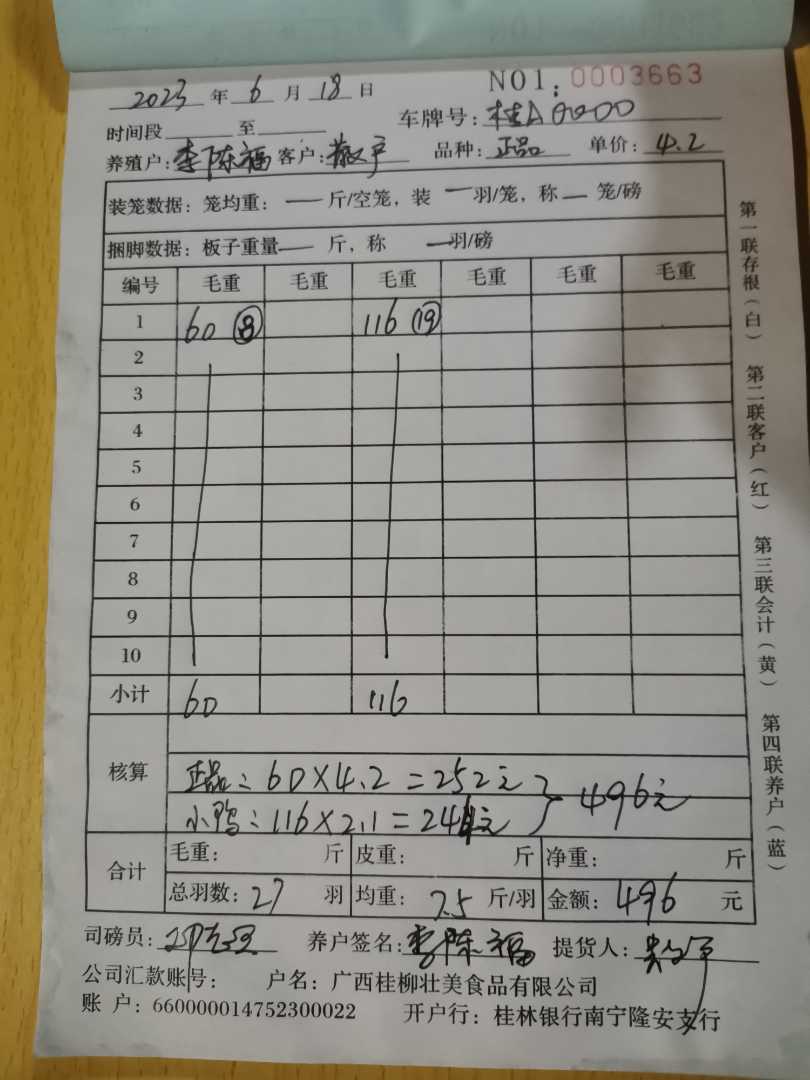 2023年6月18日 NO1:0003663
时间段 至 车牌号:桂A0000
养殖户:李陈福 客户:散户 品种:正品 单价:4.2
装笼数据:笼均重:— 斤/空笼,装 — 羽/笼,称 — 笼/磅
捆脚数据:板子重量— 斤,称 — 羽/磅
编号 毛重 毛重 毛重 毛重 毛重 毛重
1 60 ⑧ 116 ⑲
2
3
4
5
6
7
8
9
10
小计 60 116
核算
正品:60×4.2=252元
小鸭:116×2.1=244元 } 496元
合计 毛重: 斤 皮重: 斤 净重: 斤
总羽数:27 羽 均重:7.5 斤/羽 金额:496 元
司磅员: 养户签名:李陈福 提货人:
公司汇款账号: 户名:广西桂柳壮美食品有限公司
账 户:660000014752300022 开户行:桂林银行南宁隆安支行
第一联存根(白) 第二联客户(红) 第三联会计(黄) 第四联养户(蓝)